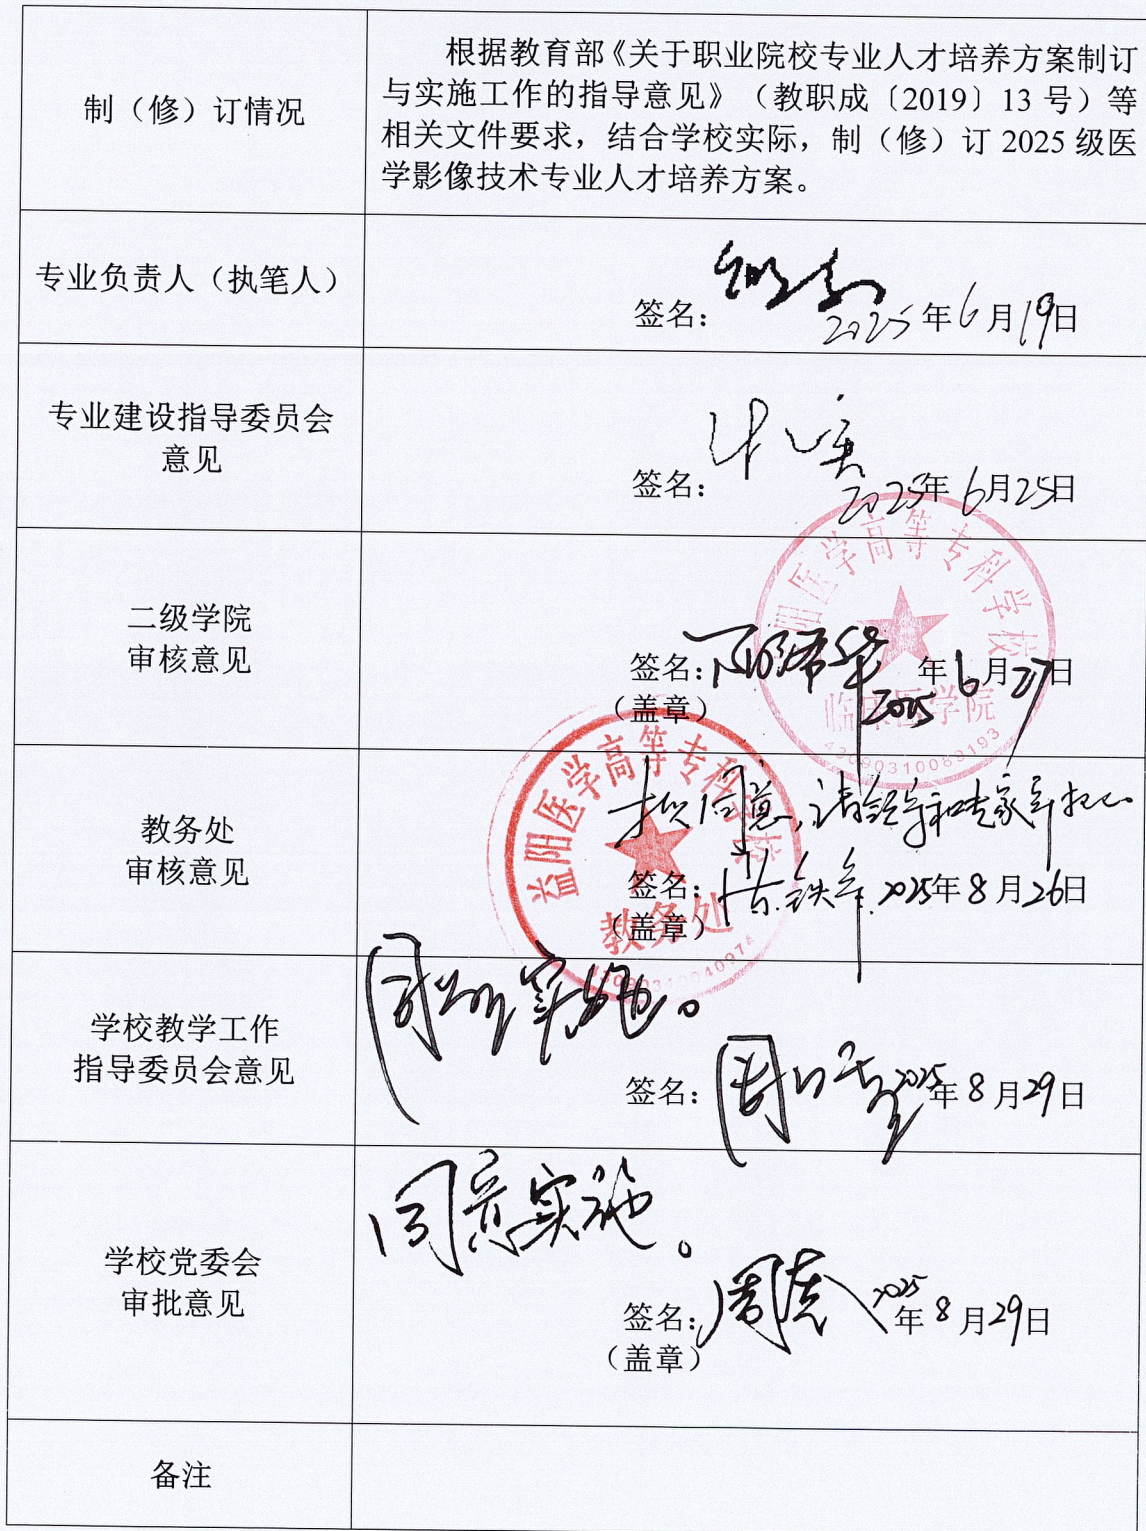 制（修）订情况
根据教育部《关于职业院校专业人才培养方案制订
与实施工作的指导意见》（教职成〔2019〕13 号）等
相关文件要求，结合学校实际，制（修）订 2025 级医
学影像技术专业人才培养方案。
专业负责人（执笔人）
签名：
2025年6月19日
专业建设指导委员会
意见
签名：
2025年6月25日
二级学院
审核意见
阳医学高等专科学校
签名：
2025年6月27日
（盖章）
临床医学院
43090310083193
教务处
审核意见
益阳医学高等专科学校
拟同意，请
签名：
2025年8月26日
（盖章）
教务处
学校教学工作
指导委员会意见
同意实施。
签名：
2025年8月29日
学校党委会
审批意见
同意实施。
签名：
2025年8月29日
（盖章）
备注